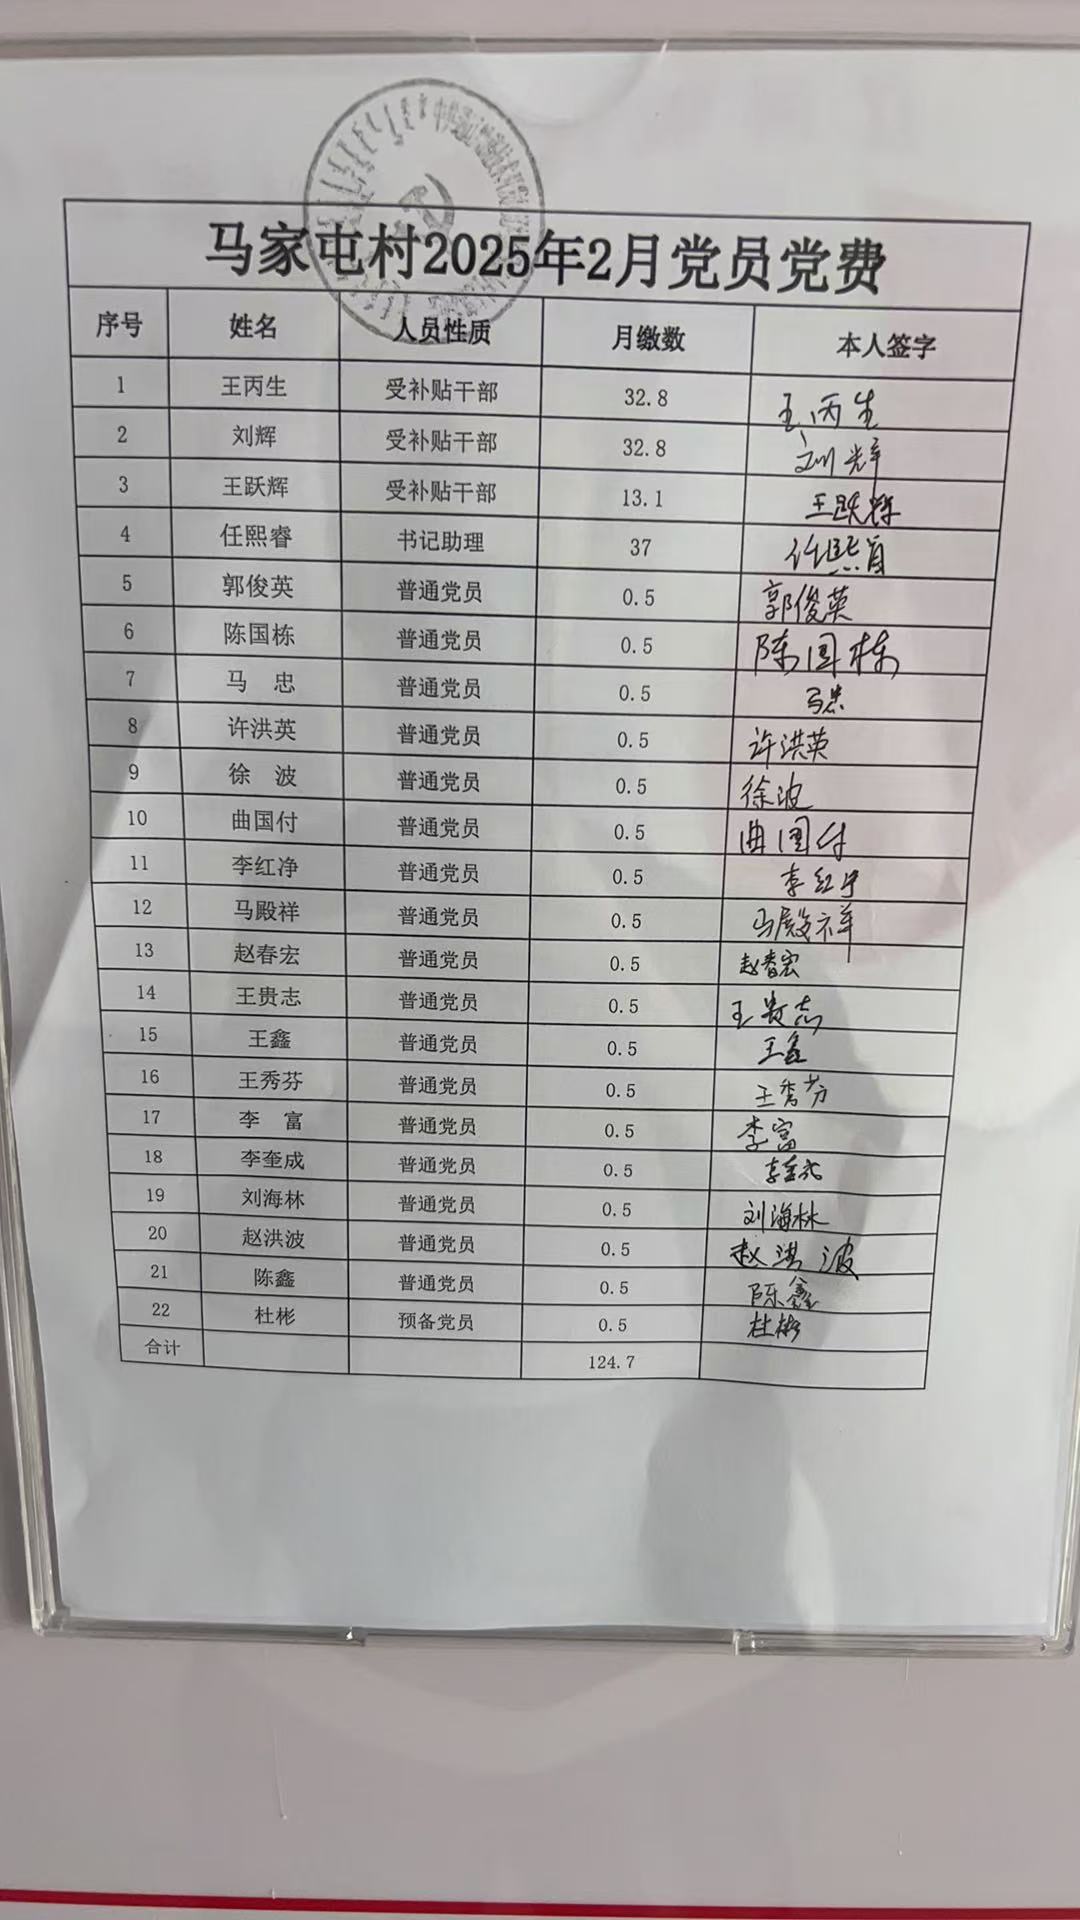 马家屯村2025年2月党员党费
序号 姓名 人员性质 月缴数 本人签字
1 王丙生 受补贴干部 32.8 王丙生
2 刘辉 受补贴干部 32.8 刘辉
3 王跃辉 受补贴干部 13.1 王跃辉
4 任熙睿 书记助理 37 任熙睿
5 郭俊英 普通党员 0.5 郭俊英
6 陈国栋 普通党员 0.5 陈国栋
7 马 忠 普通党员 0.5 马忠
8 许洪英 普通党员 0.5 许洪英
9 徐 波 普通党员 0.5 徐波
10 曲国付 普通党员 0.5 曲国付
11 李红净 普通党员 0.5 李红净
12 马殿祥 普通党员 0.5 马殿祥
13 赵春宏 普通党员 0.5 赵春宏
14 王贵志 普通党员 0.5 王贵志
15 王鑫 普通党员 0.5 王鑫
16 王秀芬 普通党员 0.5 王秀芬
17 李 富 普通党员 0.5 李富
18 李奎成 普通党员 0.5 李奎成
19 刘海林 普通党员 0.5 刘海林
20 赵洪波 普通党员 0.5 赵洪波
21 陈鑫 普通党员 0.5 陈鑫
22 杜彬 预备党员 0.5 杜彬
合计 124.7